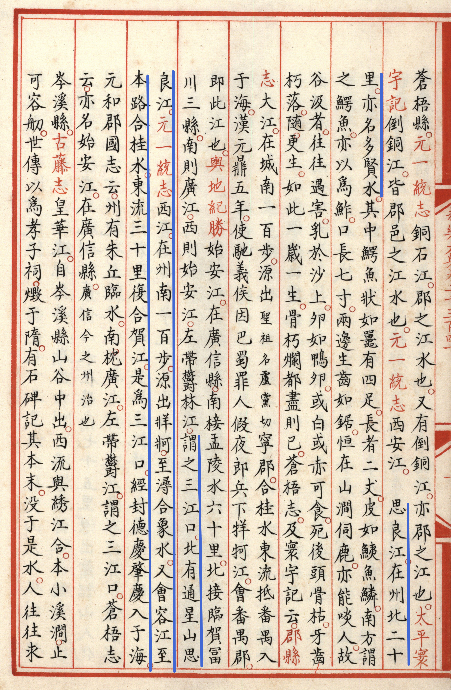 蒼梧縣元一統志銅石江郡之江水也又有倒銅江亦郡之江也太平寰
宇記倒銅江皆郡邑之江水也元一統志西安江 思良江在州北二十
里亦名多賢水其中鰐魚狀如鼉有四足長者二丈皮如鱺魚鱗南方謂
之鰐魚亦以爲鮓口長七寸兩邊生齒如鋸恒在山澗伺鹿亦能啖人故
谷汲者往往遇害乳於沙上卵如鴨卵或白或赤可食死後頭骨枯牙齒
朽落隨更生如此一歲一生骨朽爛都盡則已蒼梧志及寰宇記云郡縣
志大江在城南一百步源出聖祖名盧黨切寧郡合桂水東流抵番禺入
于海漢元鼎五年使馳義侯因巴蜀罪人假夜郎兵下牂牁江會番禺郡
即此江也輿地紀勝始安江在廣信縣南接孟陵水六十里北接臨賀富
川三縣南則廣江西則始安江左帶欝林江謂之三江口北有通星山思
良江元一統志西江在州南一百步源出牂牁至潯合象水又會容江至
本路合桂水東流三十里復合賀江是爲三江口經封德慶肇慶入于海
元和郡國志云州有朱丘臨水南枕廣江左帶欝江謂之三江口蒼梧志
云亦名始安江在廣信縣廣信今之州治也
岑溪縣古藤志皇華江自岑溪縣山谷中出西流與綉江合本小溪澗止
可容舠世傳以爲孝子祠燬于隋有石碑記其本末没于是水人往往来